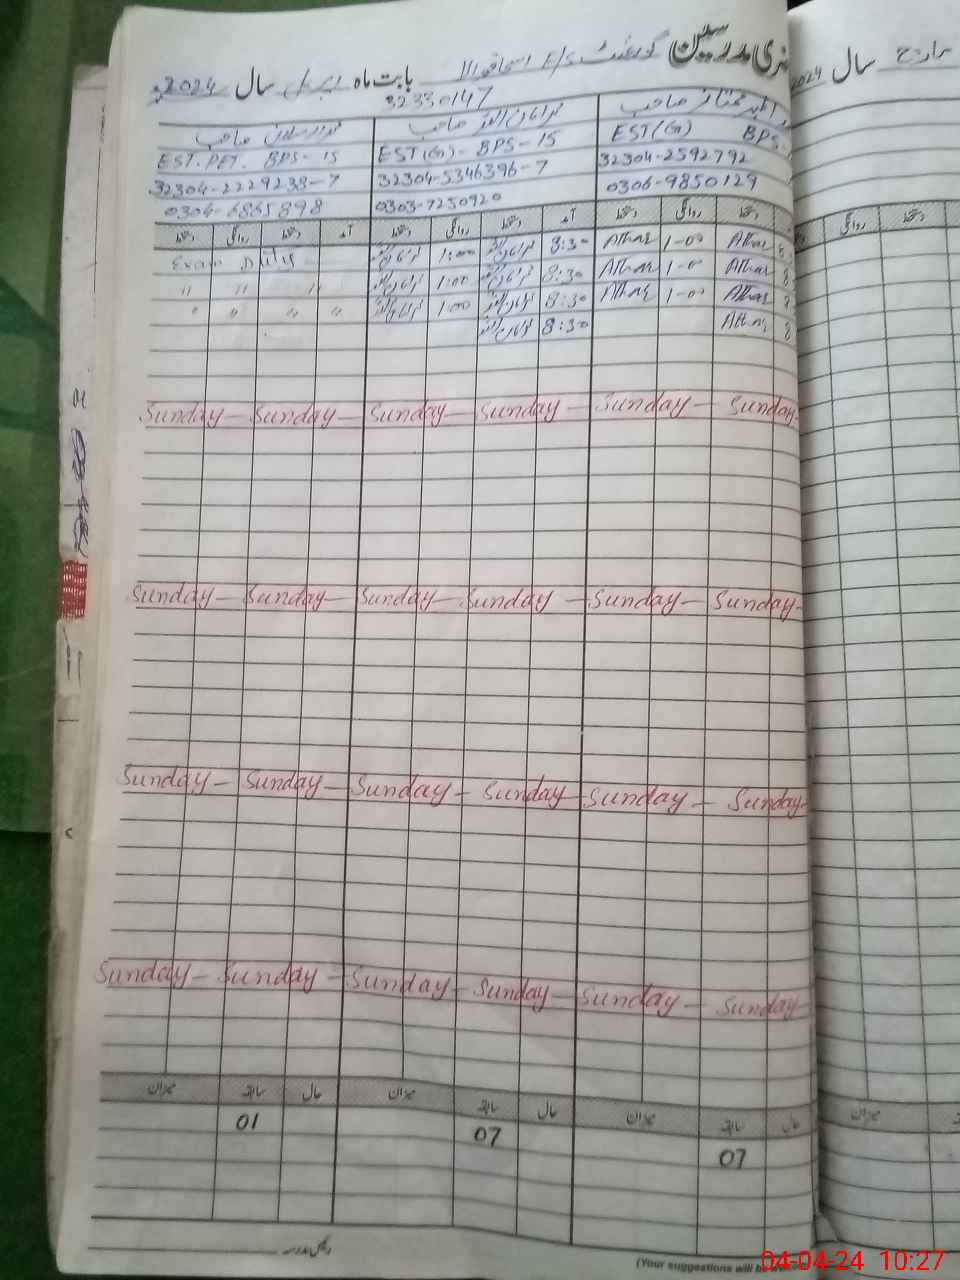 مدرسین گورنمنٹ E/S بابت ماہ اپریل سال 2024
32330147
2024 سال مارچ
صاحب صاحب صاحب
EST(G) BPS-
EST(G)- BPS-15
EST. PET. BPS-15
32304-2592792
32304-5346396-7
32304-2229233-7
0306-9850129
0303-7250920
0304-6865898
دستخط روانگی دستخط آمد دستخط روانگی دستخط آمد دستخط روانگی دستخط
روانگی دستخط
Athar 1-00 Athar 8:30 1:00 Exam
Athar 1-0 Athar 8:30 1:00 " " "
Athar 1-0 Athar 8:30 1:00 " " " "
Athar 8:30
Sunday - Sunday - Sunday - Sunday - Sunday - Sunday-
Sunday - Sunday - Sunday - Sunday - Sunday - Sunday-
Sunday - Sunday - Sunday - Sunday - Sunday - Sunday-
Sunday - Sunday - Sunday - Sunday - Sunday - Sunday-
حال سابقہ میزان حال سابقہ میزان حال سابقہ میزان
میزان
01
07
07
رئیس مدرسہ
(Your suggestions will be
04-04-24 10:27